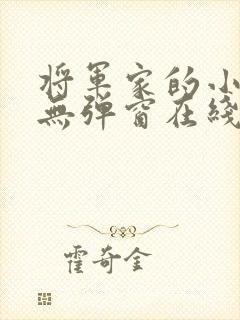 将军家的小
無弹窗在綫
霍奇金